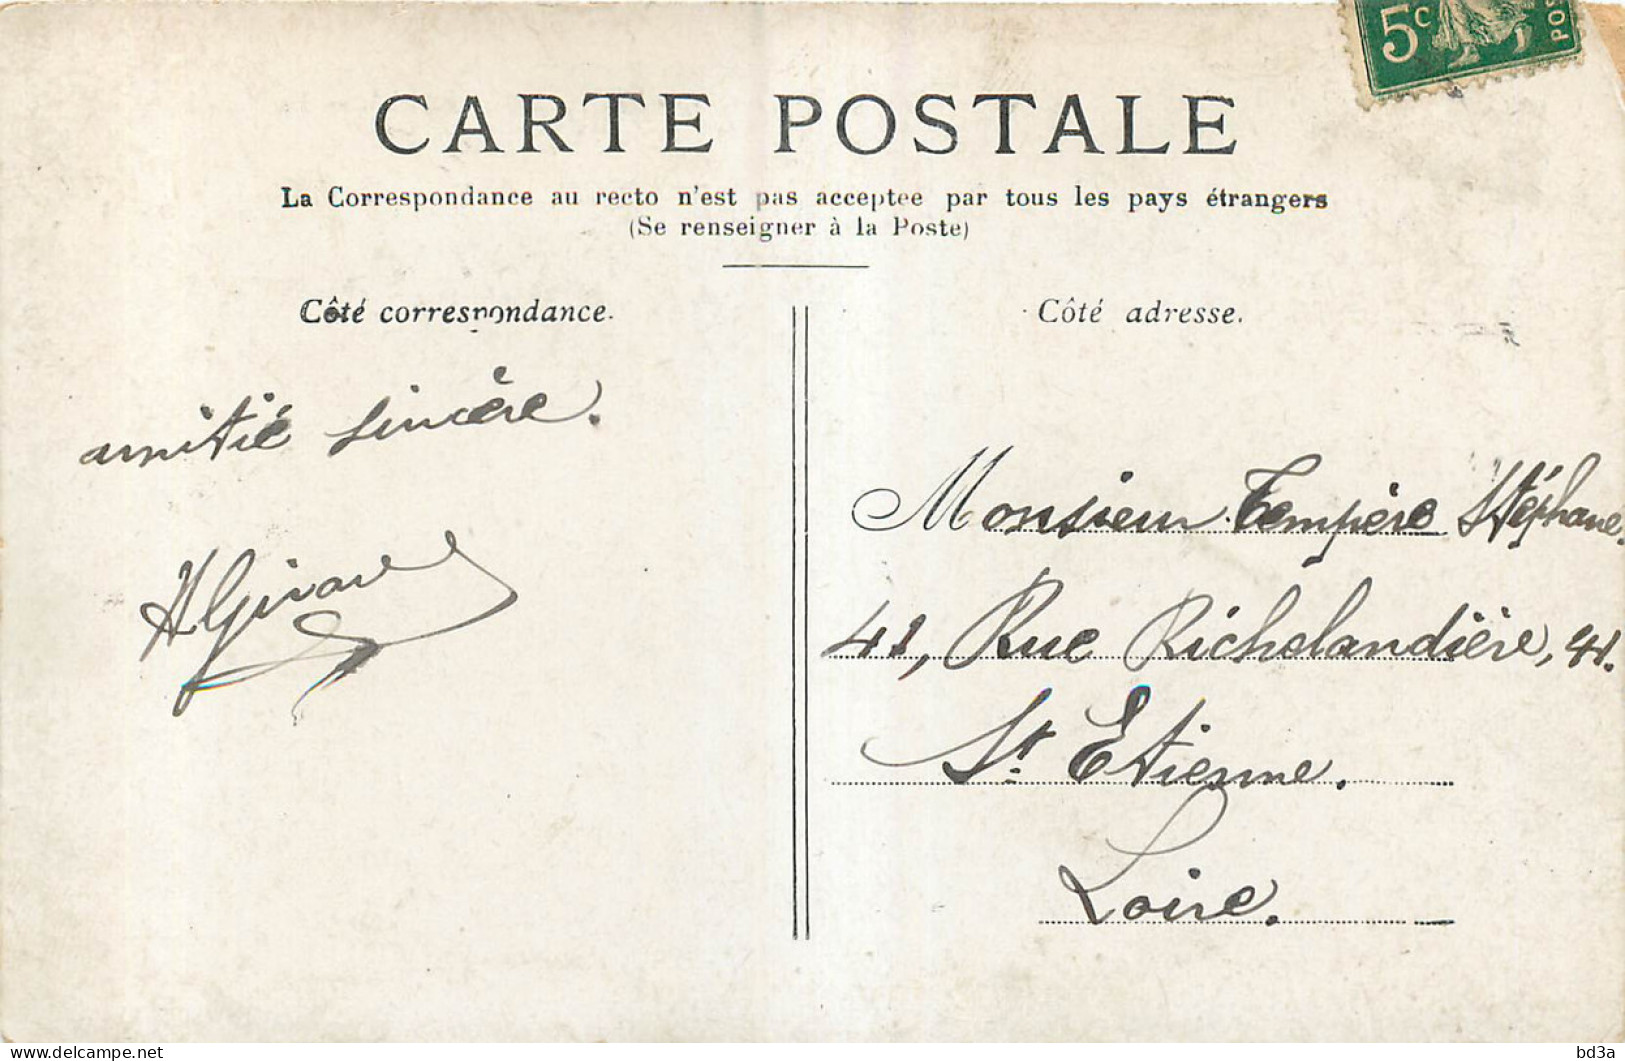 5c
POS
CARTE POSTALE
La Correspondance au recto n'est pas acceptee par tous les pays étrangers
(Se renseigner à la Poste)
Côté correspondance.
amitié sincère.
HGirard
Côté adresse.
Monsieur Tempère Stéphane.
41, Rue Richelandière, 41.
St. Etienne.
Loire.
delcampe.net
bd3a